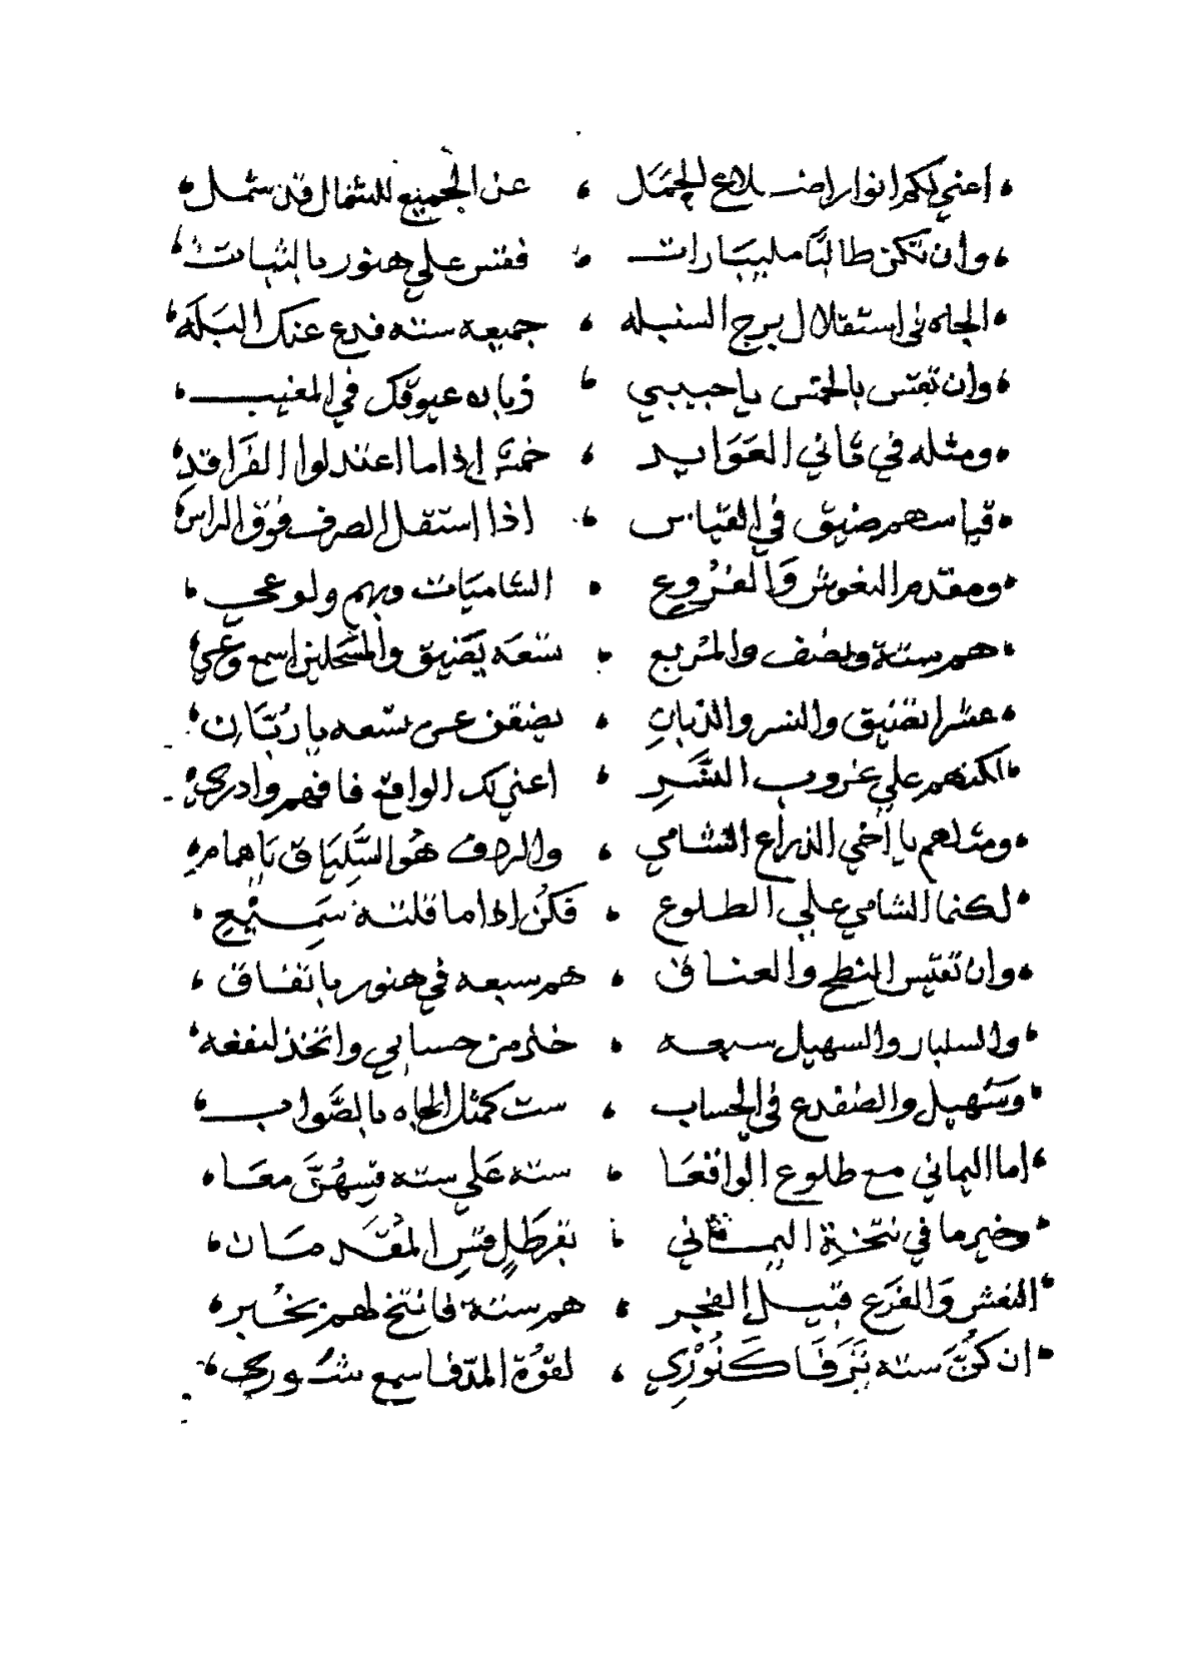 اعني لكم انوار اضلاع الجمل ، عن الجميع للشمال قد شمل
وان تكن طالبًا مليبارات ، فقس علي هنور بالثبات
الجاه في استقلال برج السنبله ، جميعه سته فدع عنك البله
وان تقس بالخس يا حبيبي ، ذبانه عيوقك في المغيب
ومثله في ثاني العوايد ، خمسة اذا ما اعتدلوا الفراقد
قياسهم ضيق في القياس ، اذا استقل الصرف فوق الراس
ومقدم النعوش والفروع ، الشاميات وبهم ولوعي
هم ستة ونصف والمربع ، تسعه يضيق والمحلين اسمع وعي
عشرا تضيق والنسر والذبان ، يضقن عن تسعه يا ربان
لكنهم علي غروب النسر ، اعني لك الواقع فافهم وادري
ومثلهم يا اخي الذراع الشامي ، والردف هو السلياق يا همام
لكنما الشامي علي الطلوع ، فكن اذا ما قلته سميع
وان تقيس النطح والعناق ، هم سبعه في هنور باتفاق
والسلبار والسهيل سبعه ، خذ من حسابي واتخذ لنفعه
وسهيل والضفدع في الحساب ، ست كمثل الجاه بالصواب
اما اليماني مع طلوع الواقعا ، سته علي سته قسهن معا
وخير ما في نتخة اليماني ، تفرطل قس المقدمان
النعش والفرع قبيل الفجر ، هم ستة فانتخ لهم بخبر
ان كن سته نزفا كنوري ، لقوة المد فاسمع شوري